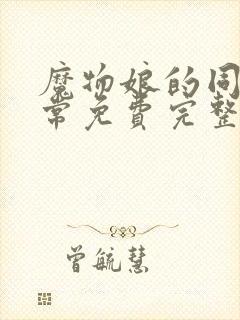 魔物娘的同
常免费完整
曾毓慧